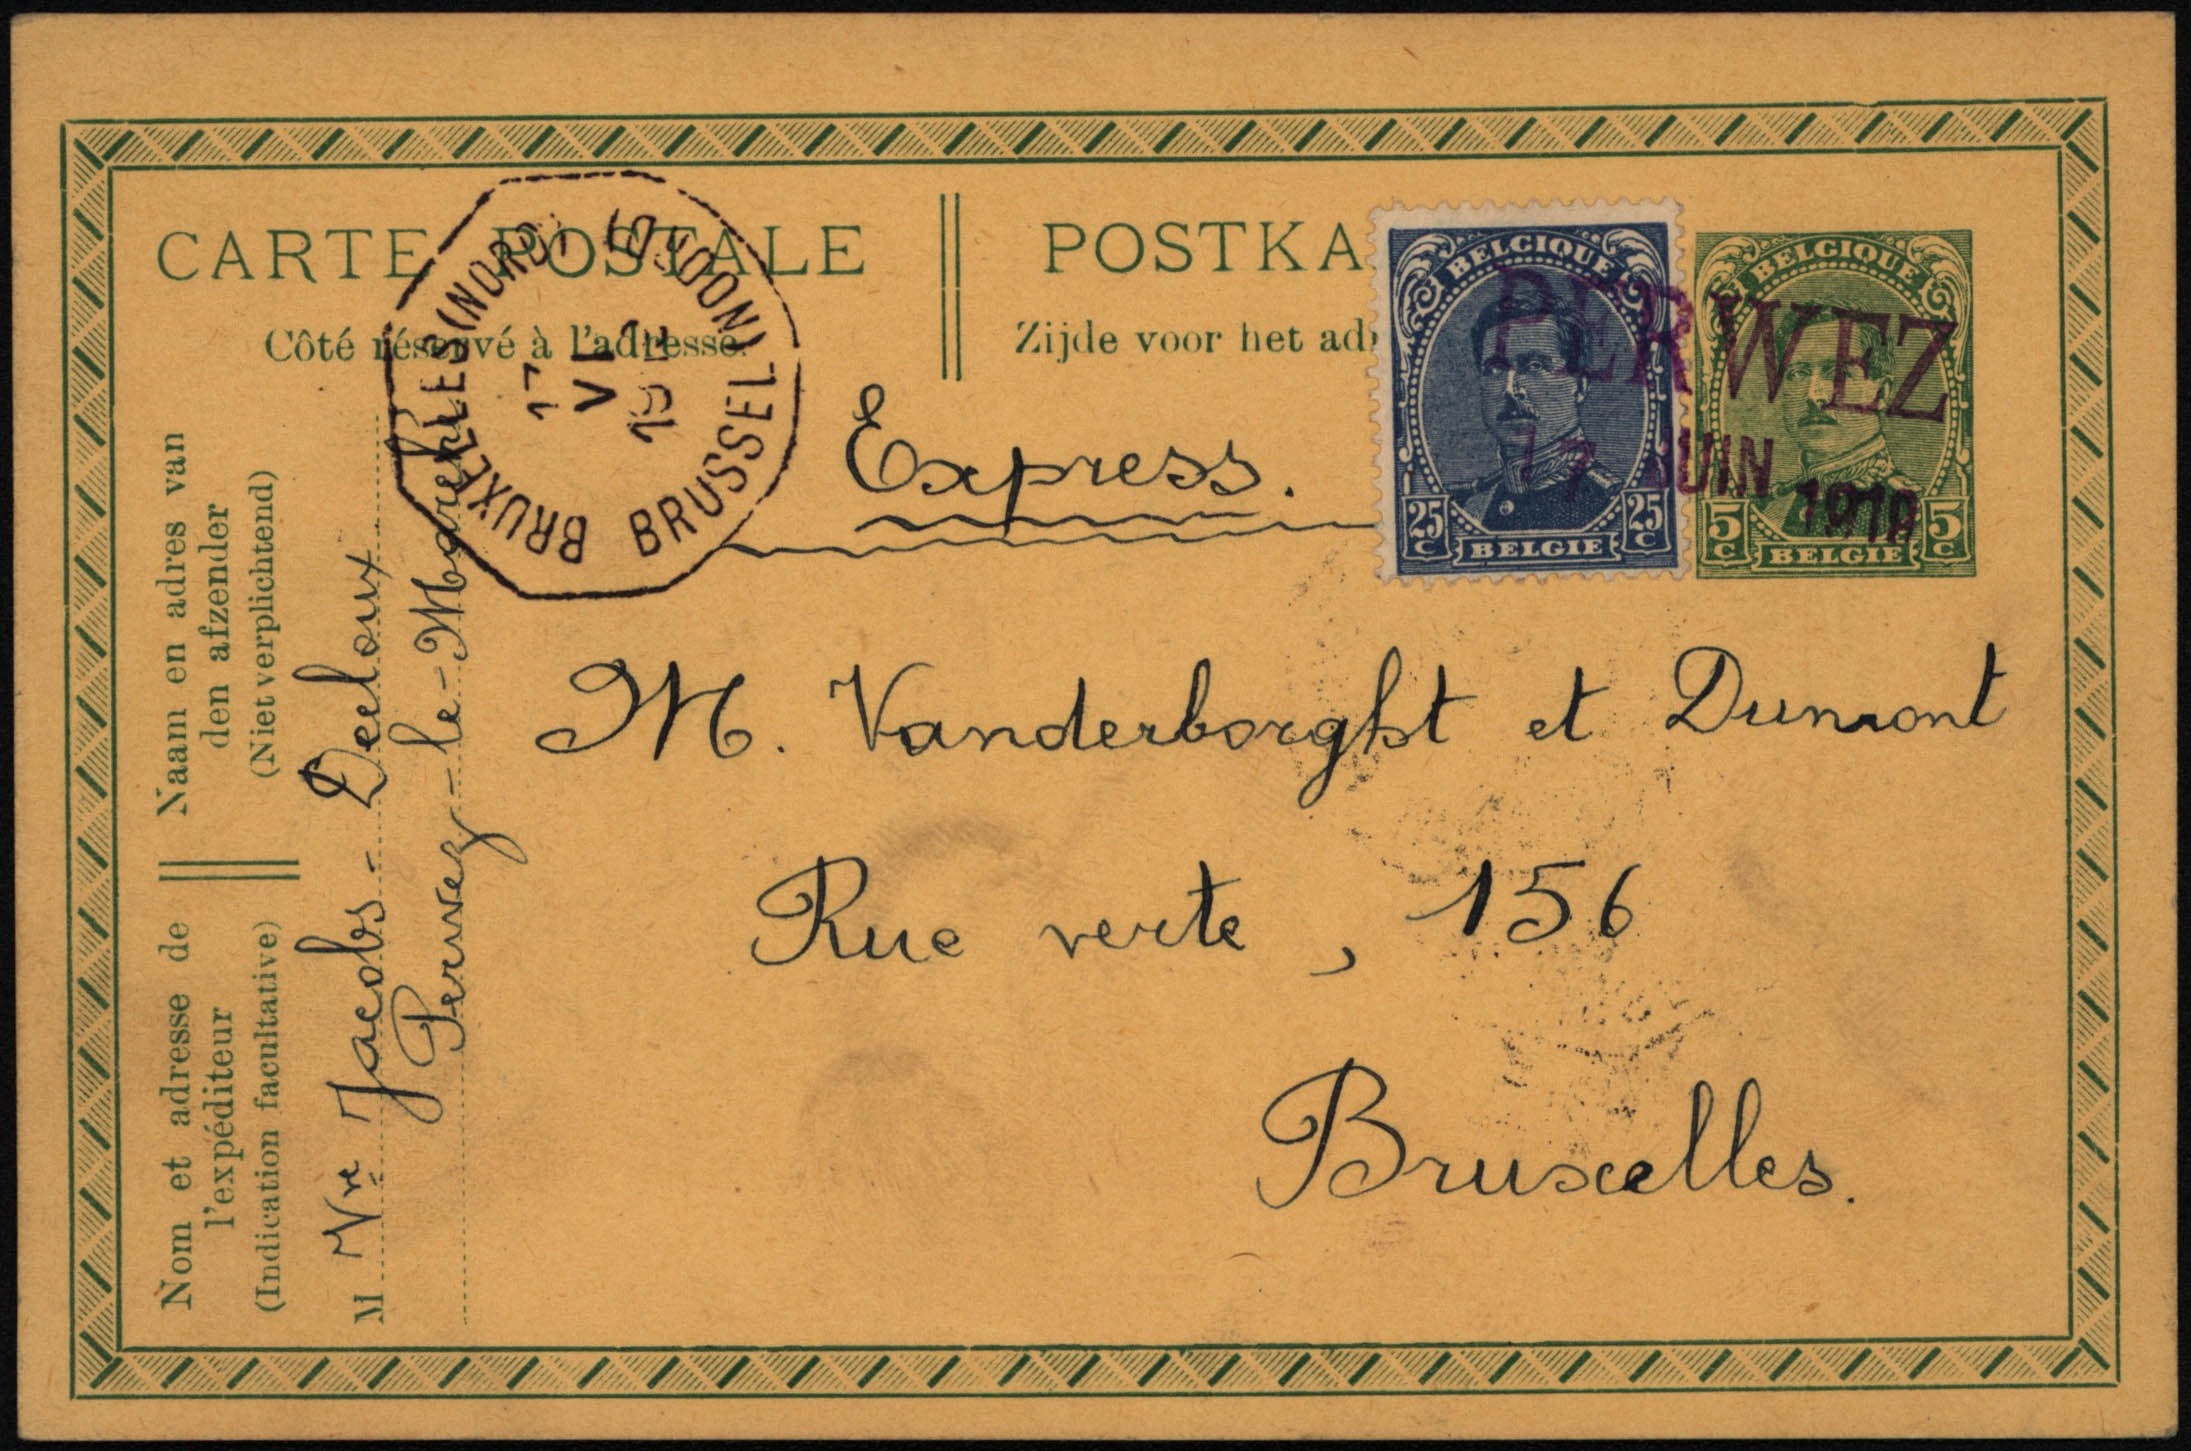 CARTE POSTALE
Côté réservé à l'adresse.
POSTKA
Zijde voor het adr
BRUXELLES (NORD)
BRUSSEL (NOORD)
17
VI
BELGIQUE
25 C 25 C
BELGIE
BELGIQUE
5 C 5 C
BELGIE
PERWEZ
17 JUIN 1919
Express.
M. Vanderborght et Dumont
Rue verte, 156
Bruxelles.
Naam en adres van
den afzender
(Niet verplichtend)
Nom et adresse de
l'expéditeur
(Indication facultative)
M Vve Jacobs-Deeloux
Perwez-le-Marché